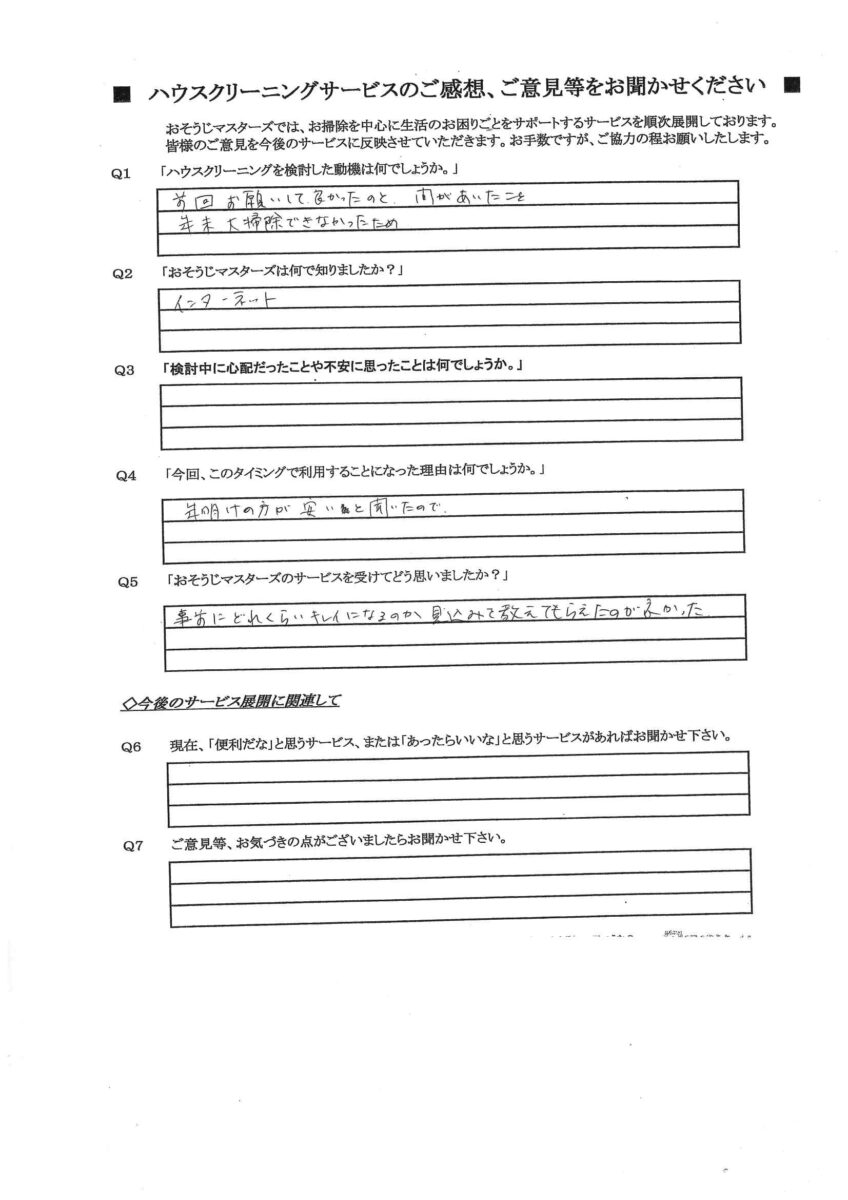 ■ ハウスクリーニングサービスのご感想、ご意見等をお聞かせください ■
おそうじマスターズでは、お掃除を中心に生活のお困りごとをサポートするサービスを順次展開しております。
皆様のご意見を今後のサービスに反映させていただきます。お手数ですが、ご協力の程お願いしたします。
Q1 「ハウスクリーニングを検討した動機は何でしょうか。」
前回お願いして良かったのと、間があいたことと
年末大掃除できなかったため
Q2 「おそうじマスターズは何で知りましたか？」
インターネット
Q3 「検討中に心配だったことや不安に思ったことは何でしょうか。」
Q4 「今回、このタイミングで利用することになった理由は何でしょうか。」
年明けの方が安いと聞いたので。
Q5 「おそうじマスターズのサービスを受けてどう思いましたか？」
事前にどれくらいキレイになるのか見込みで教えてもらえたのが良かった
◇今後のサービス展開に関連して
Q6 現在、「便利だな」と思うサービス、または「あったらいいな」と思うサービスがあればお聞かせ下さい。
Q7 ご意見等、お気づきの点がございましたらお聞かせ下さい。